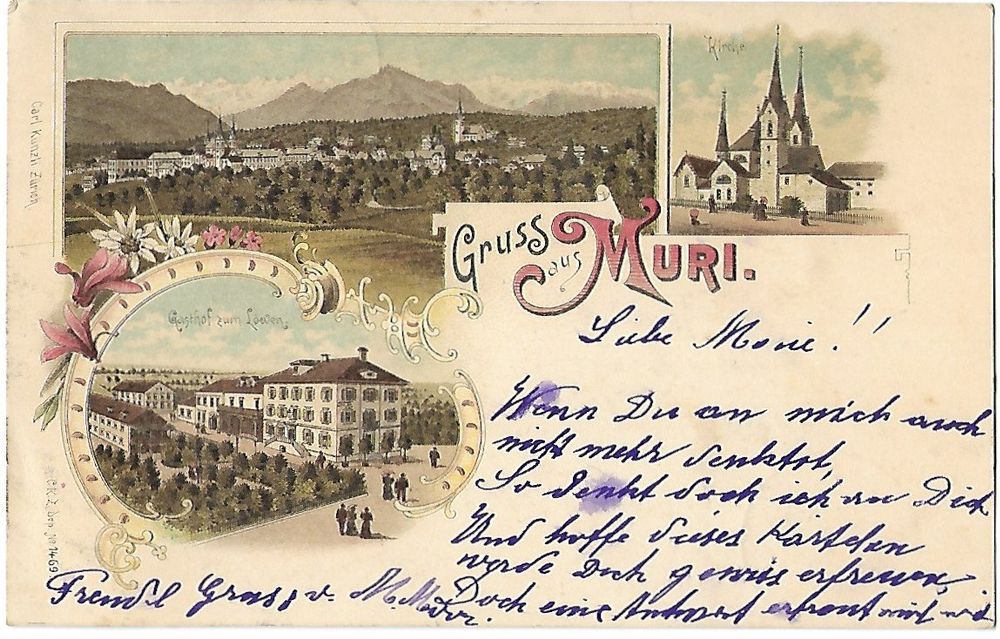 Carl Künzli Zürich
Kirche
Gruss aus MURI.
Gasthof zum Loewen.
C.K.Z. Dep. No 1469
Liebe Marie!!
Wenn Du an mich auch
nicht mehr denktst,
So denkt doch ich an Dich
Und hoffe dieses Kärtchen
werde Dich gewiss erfreuen,
Doch eine Antwort erfreut mich
Freundl Gruss v. M.